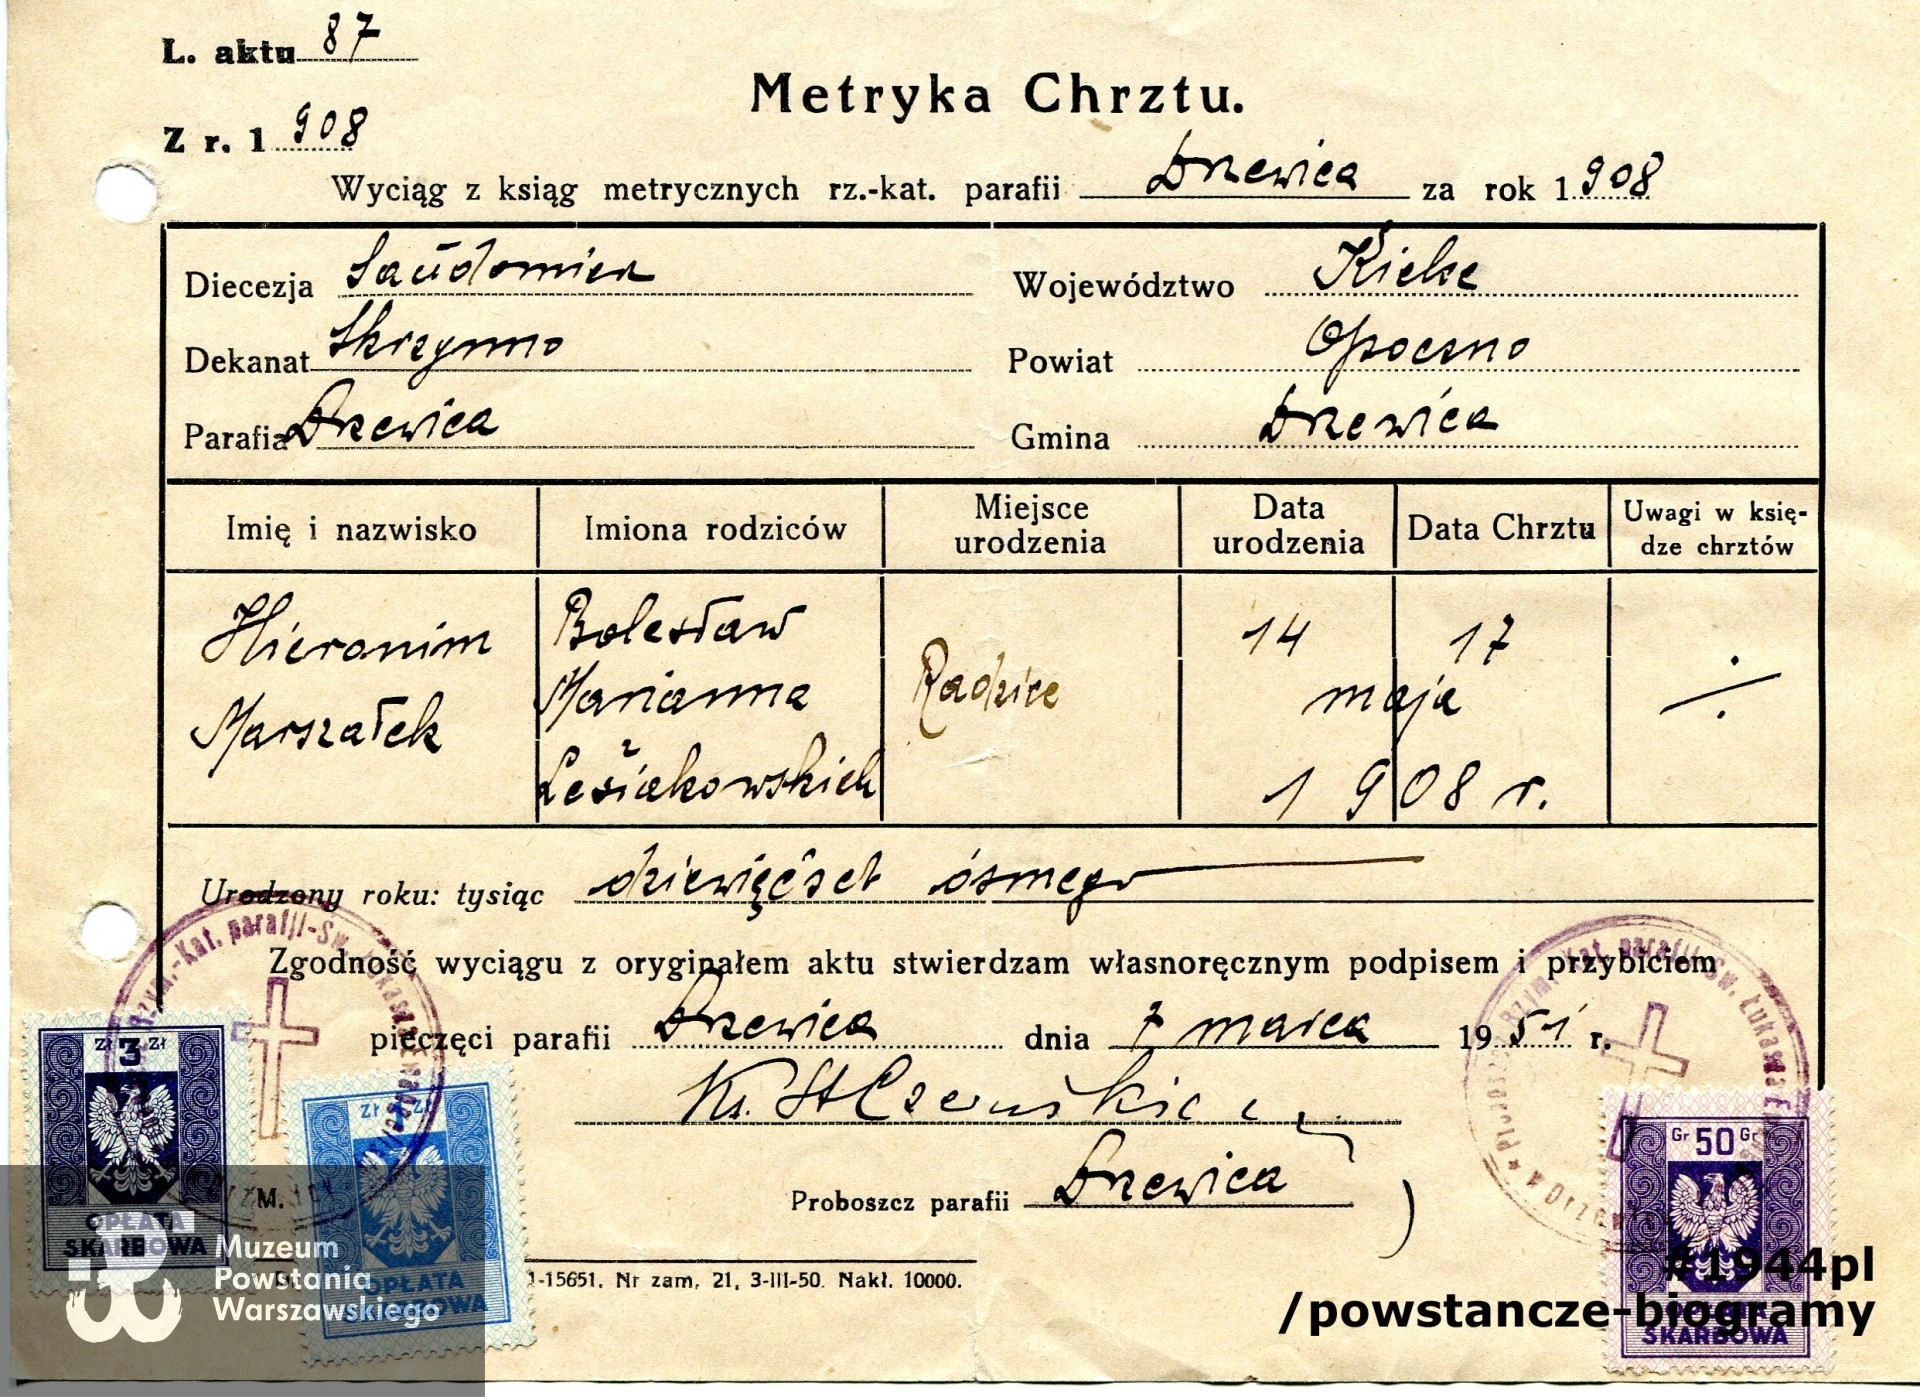 L. aktu 87
Metryka Chrztu.
Z r. 1 908
Wyciąg z ksiąg metrycznych rz.-kat. parafii Drzewica za rok 1 908
Diecezja Sandomierz
Województwo Kielce
Dekanat Skrzynno
Powiat Opoczno
Parafia Drzewica
Gmina Drzewica
Imię i nazwisko
Imiona rodziców
Miejsce urodzenia
Data urodzenia
Data Chrztu
Uwagi w księ-
dze chrztów
Hieronim
Marszałek
Bolesław
Marianna
z
Leśiakowskich
Radzice
14
17
maja
1908 r.
Urodzony roku: tysiąc dziewięćset ósmego
Zgodność wyciągu z oryginałem aktu stwierdzam własnoręcznym podpisem i przybiciem
pieczęci parafii Drzewica dnia 7 marca 1951 r.
Ks. St Czernikiewicz
Proboszcz parafii Drzewica
M.
1-15651. Nr zam, 21, 3-III-50. Nakł. 10000.
Zł 3 Zł
OPŁATA
SKARBOWA
Zł Zł
OPŁATA
SKARBOWA
Gr 50 Gr
SKARBOWA
Kat. parafji Św. Łukasza
Muzeum
Powstania
Warszawskiego
#1944pl
/powstancze-biogramy